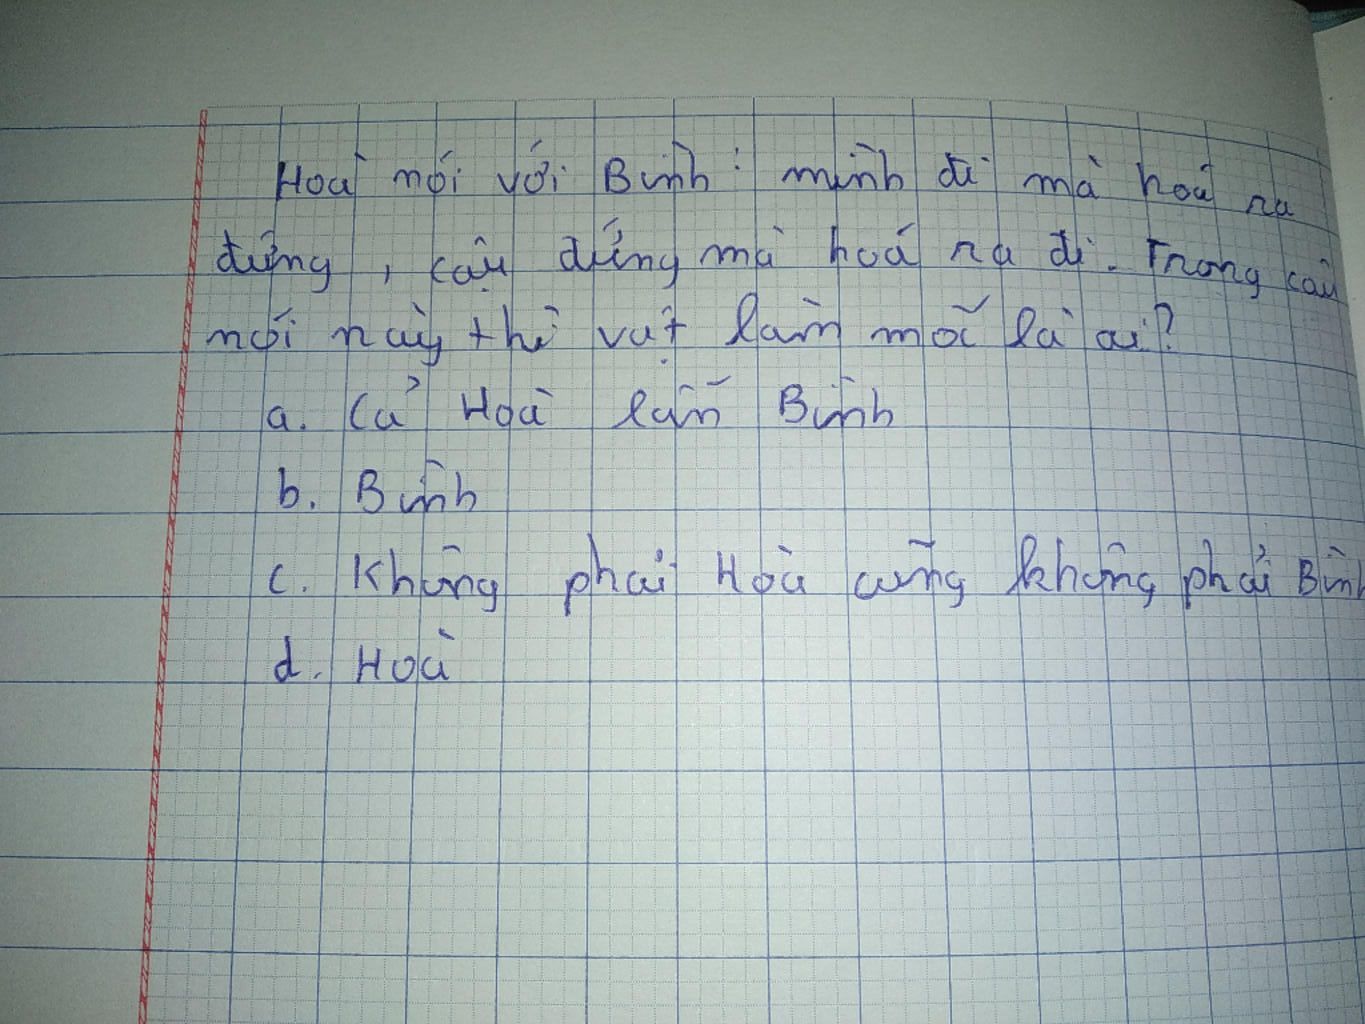 Hoà nói với Bình: mình đi mà hoá ra
đứng, cậu đứng mà hoá ra đi. Trong câu
nói này thì vật làm mốc là ai?
a. Cả Hoà lẫn Bình
b. Bình
c. Không phải Hoà cũng không phải Bình
d. Hoà